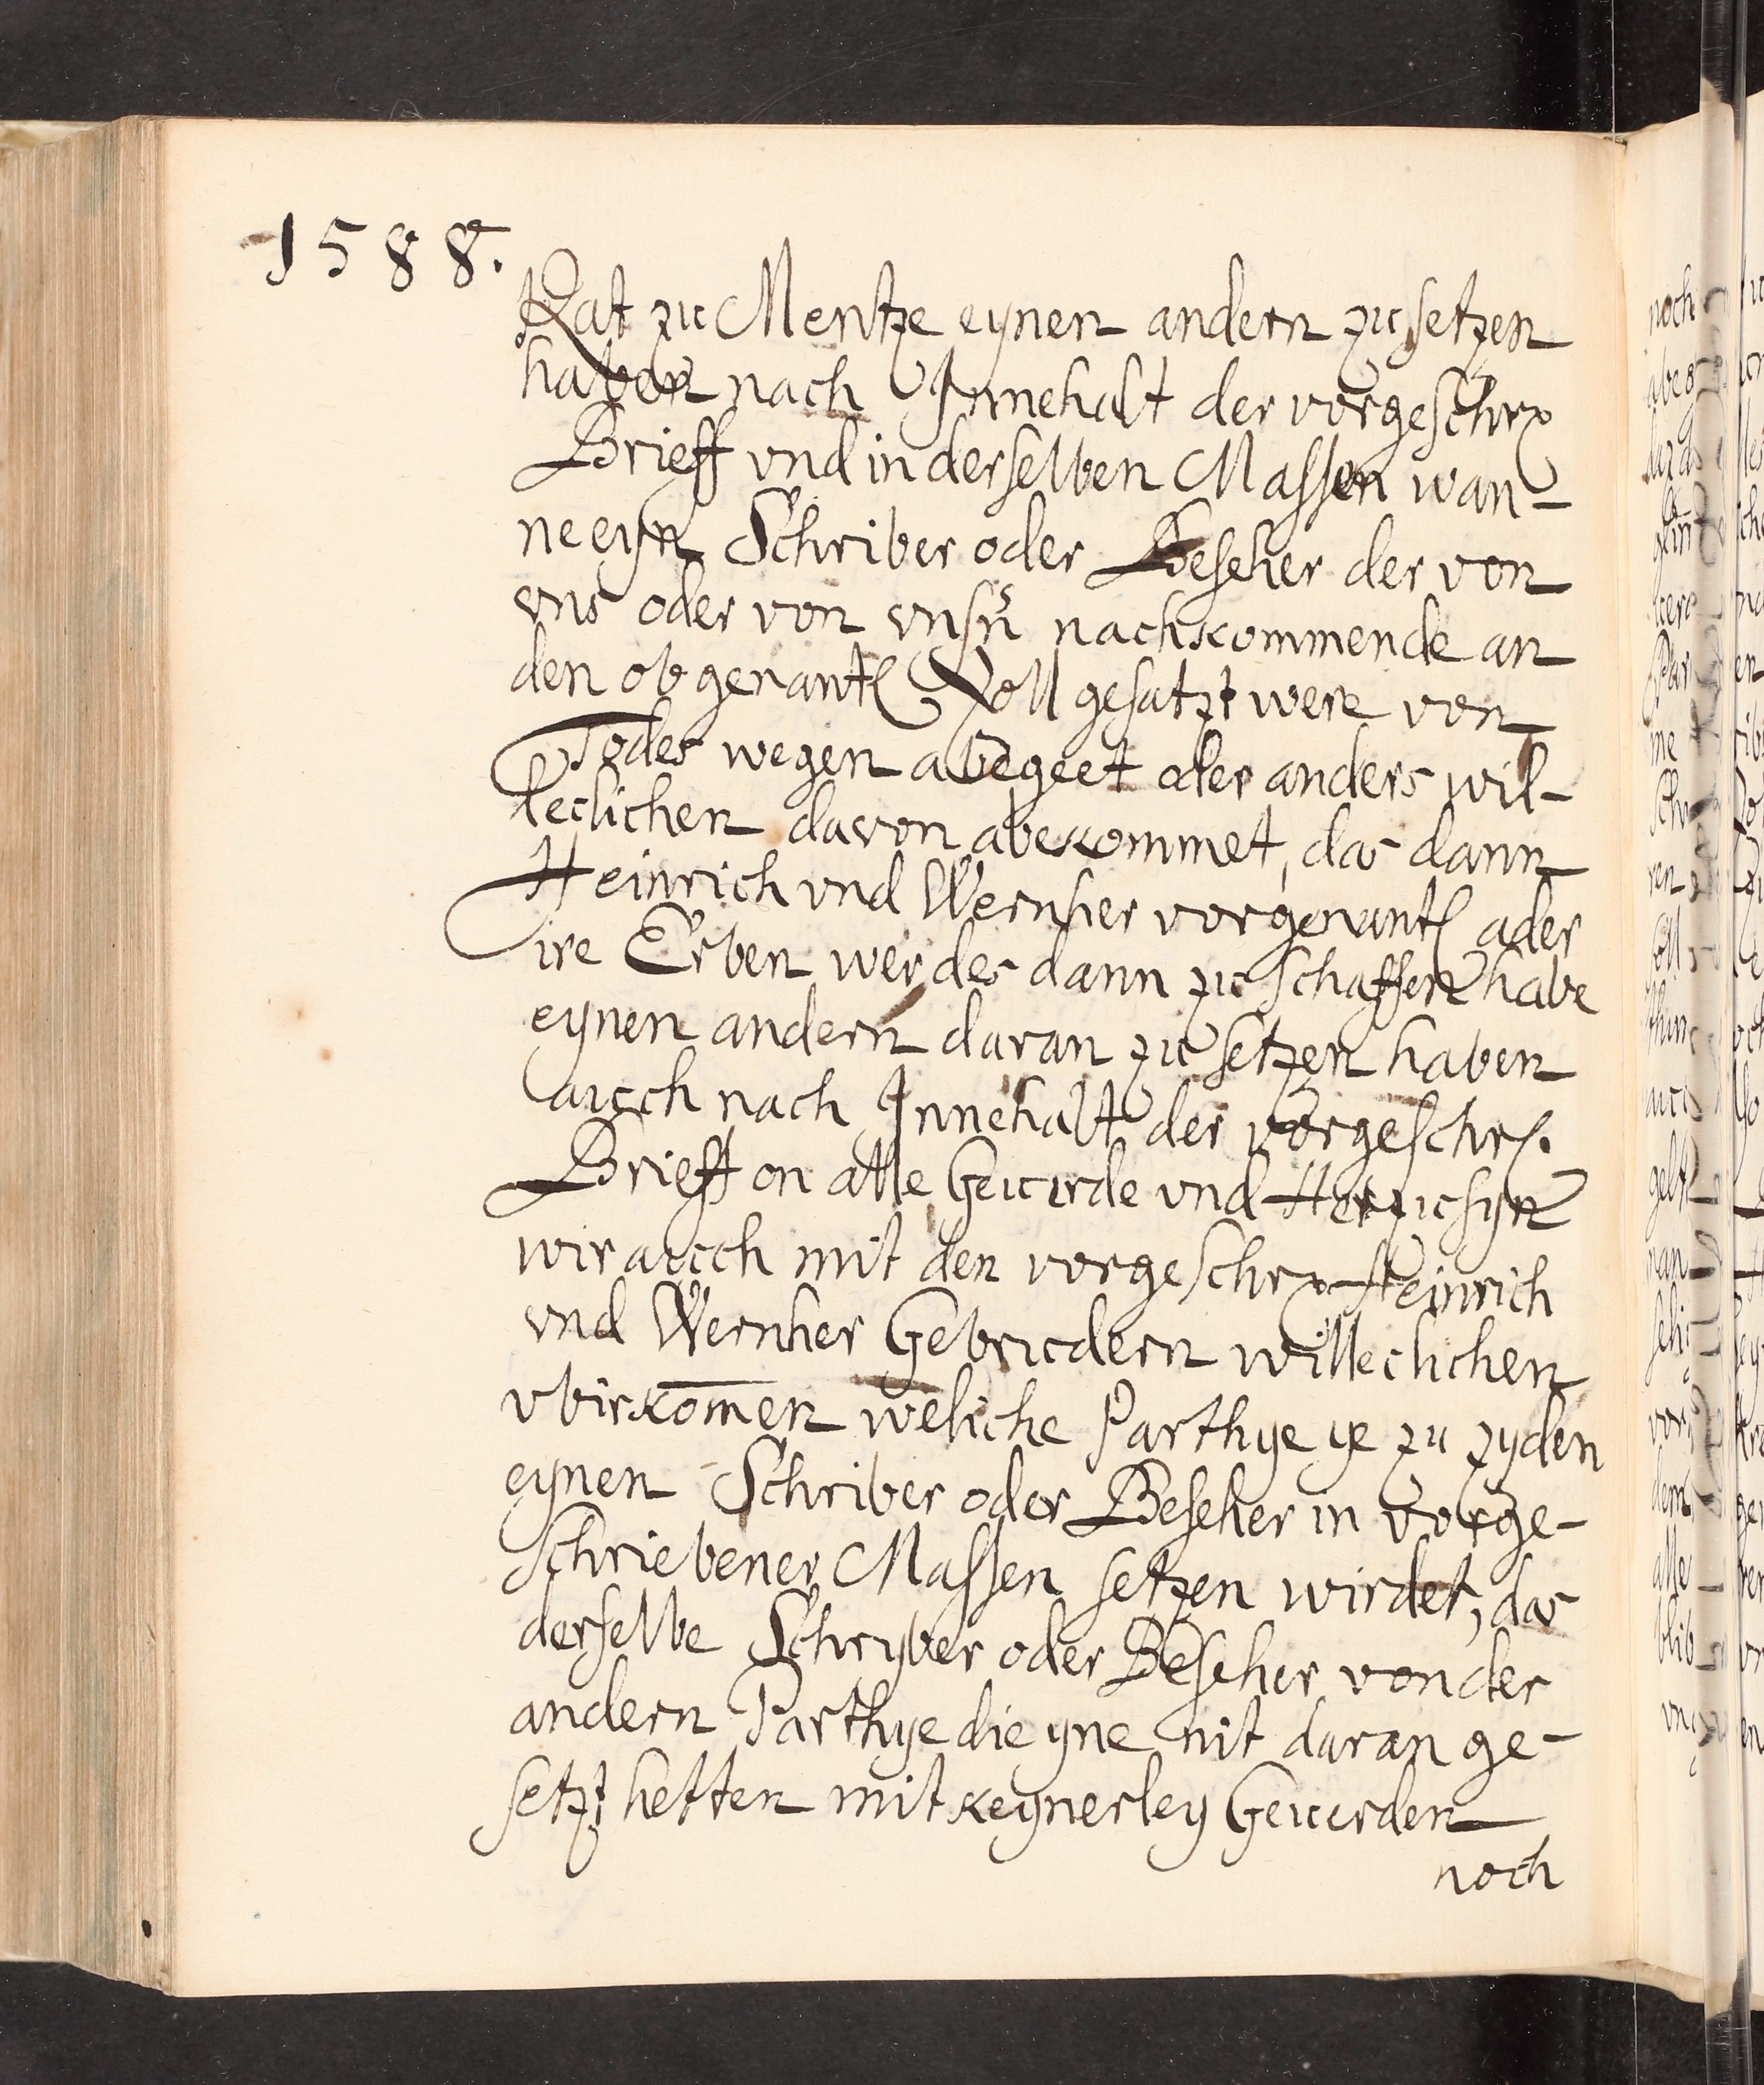 1588.
Rat zu Mentze eynen andern zu setzen
haben nach Innehalt der vorgeschr
Brieff vnd in derselben Massen wan-
ne eyn Schriber oder Beseher der von
vns oder von vnsn nachkommende an
den obgenant Zoll gesatzt were von
Todes wegen abegeet oder anders wil-
leclichen davon abekommet, das dann
Heinrich vnd Wernher vorgenant ader
ire Erben wer des dann zu schaffen habe
eynen andern daran zu setzen haben
auch nach Innehalt der vorgeschr.
Brieff on alle Geuerde vnd Herzu syn
wir auch mit den vorgeschr Heinrich
vnd Wernher Gebrudern willeclichen
vbirkomen weliche Parthye ye zu zyden
eynen Schriber oder Beseher in vorge-
schriebener Massen setzen wirdet, das
derselbe Schryber oder Beseher von der
andern Parthye die yne nit daran ge-
setzt hetten mit keynerley Geuerden
noch